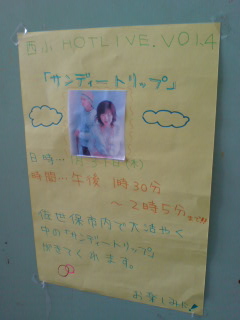 西小 HOTLIVE.VOl.4
「サンディートリップ」
日時…
時間…午後 1時30分
～2時5分まで!!
佐世保市内で大活やく
中の「サンディートリップ」
がきてくれます。
お楽しみに!